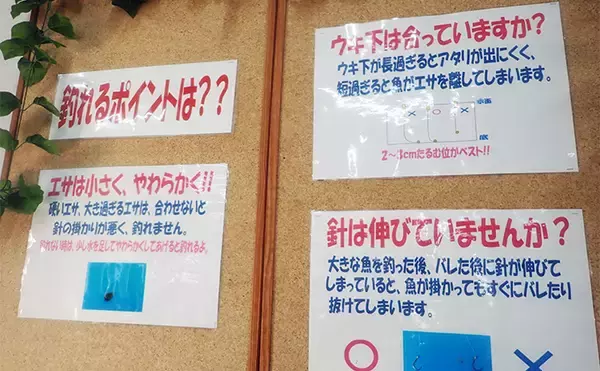 釣れるポイントは??
エサは小さく、やわらかく!!
硬いエサ、大き過ぎるエサは、合わせないと
針の掛かりが悪く、釣れません。
釣れない時は、少し水を足してやわらかくしてあげると釣れるよ。
ウキ下は合っていますか?
ウキ下が長過ぎるとアタリが出にくく、
短過ぎると魚がエサを離してしまいます。
水面
× ○ ×
底
2~3cmたるむ位がベスト!!
針は伸びていませんか?
大きな魚を釣った後、バレた後に針が伸びて
しまっていると、魚が掛かってもすぐにバレたり
抜けてしまいます。
○ ×